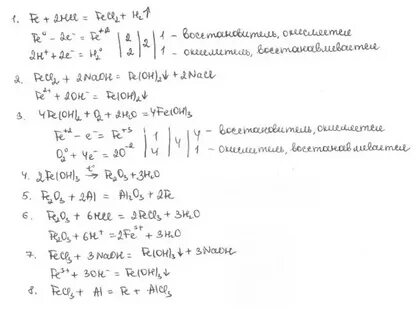 1. Fe + 2HCl = FeCl₂ + H₂↑
Fe⁰ - 2e⁻ = Fe⁺² | 2 | 2 | 1 - восстановитель, окисляется
2H⁺ + 2e⁻ = H₂⁰ | 2 | 2 | 1 - окислитель, восстанавливается
2. FeCl₂ + 2NaOH = Fe(OH)₂↓ + 2NaCl
Fe²⁺ + 2OH⁻ = Fe(OH)₂↓
3. 4Fe(OH)₂ + O₂ + 2H₂O = 4Fe(OH)₃
Fe⁺² - e⁻ = Fe⁺³ | 1 | 4 | 4 - восстановитель, окисляется
O₂⁰ + 4e⁻ = 2O⁻² | 4 | 4 | 1 - окислитель, восстанавливается
4. 2Fe(OH)₃ t°→ Fe₂O₃ + 3H₂O
5. Fe₂O₃ + 2Al = Al₂O₃ + 2Fe
6. Fe₂O₃ + 6HCl = 2FeCl₃ + 3H₂O
Fe₂O₃ + 6H⁺ = 2Fe³⁺ + 3H₂O
7. FeCl₃ + 3NaOH = Fe(OH)₃↓ + 3NaOH
Fe³⁺ + 3OH⁻ = Fe(OH)₃↓
8. FeCl₃ + Al = Fe + AlCl₃